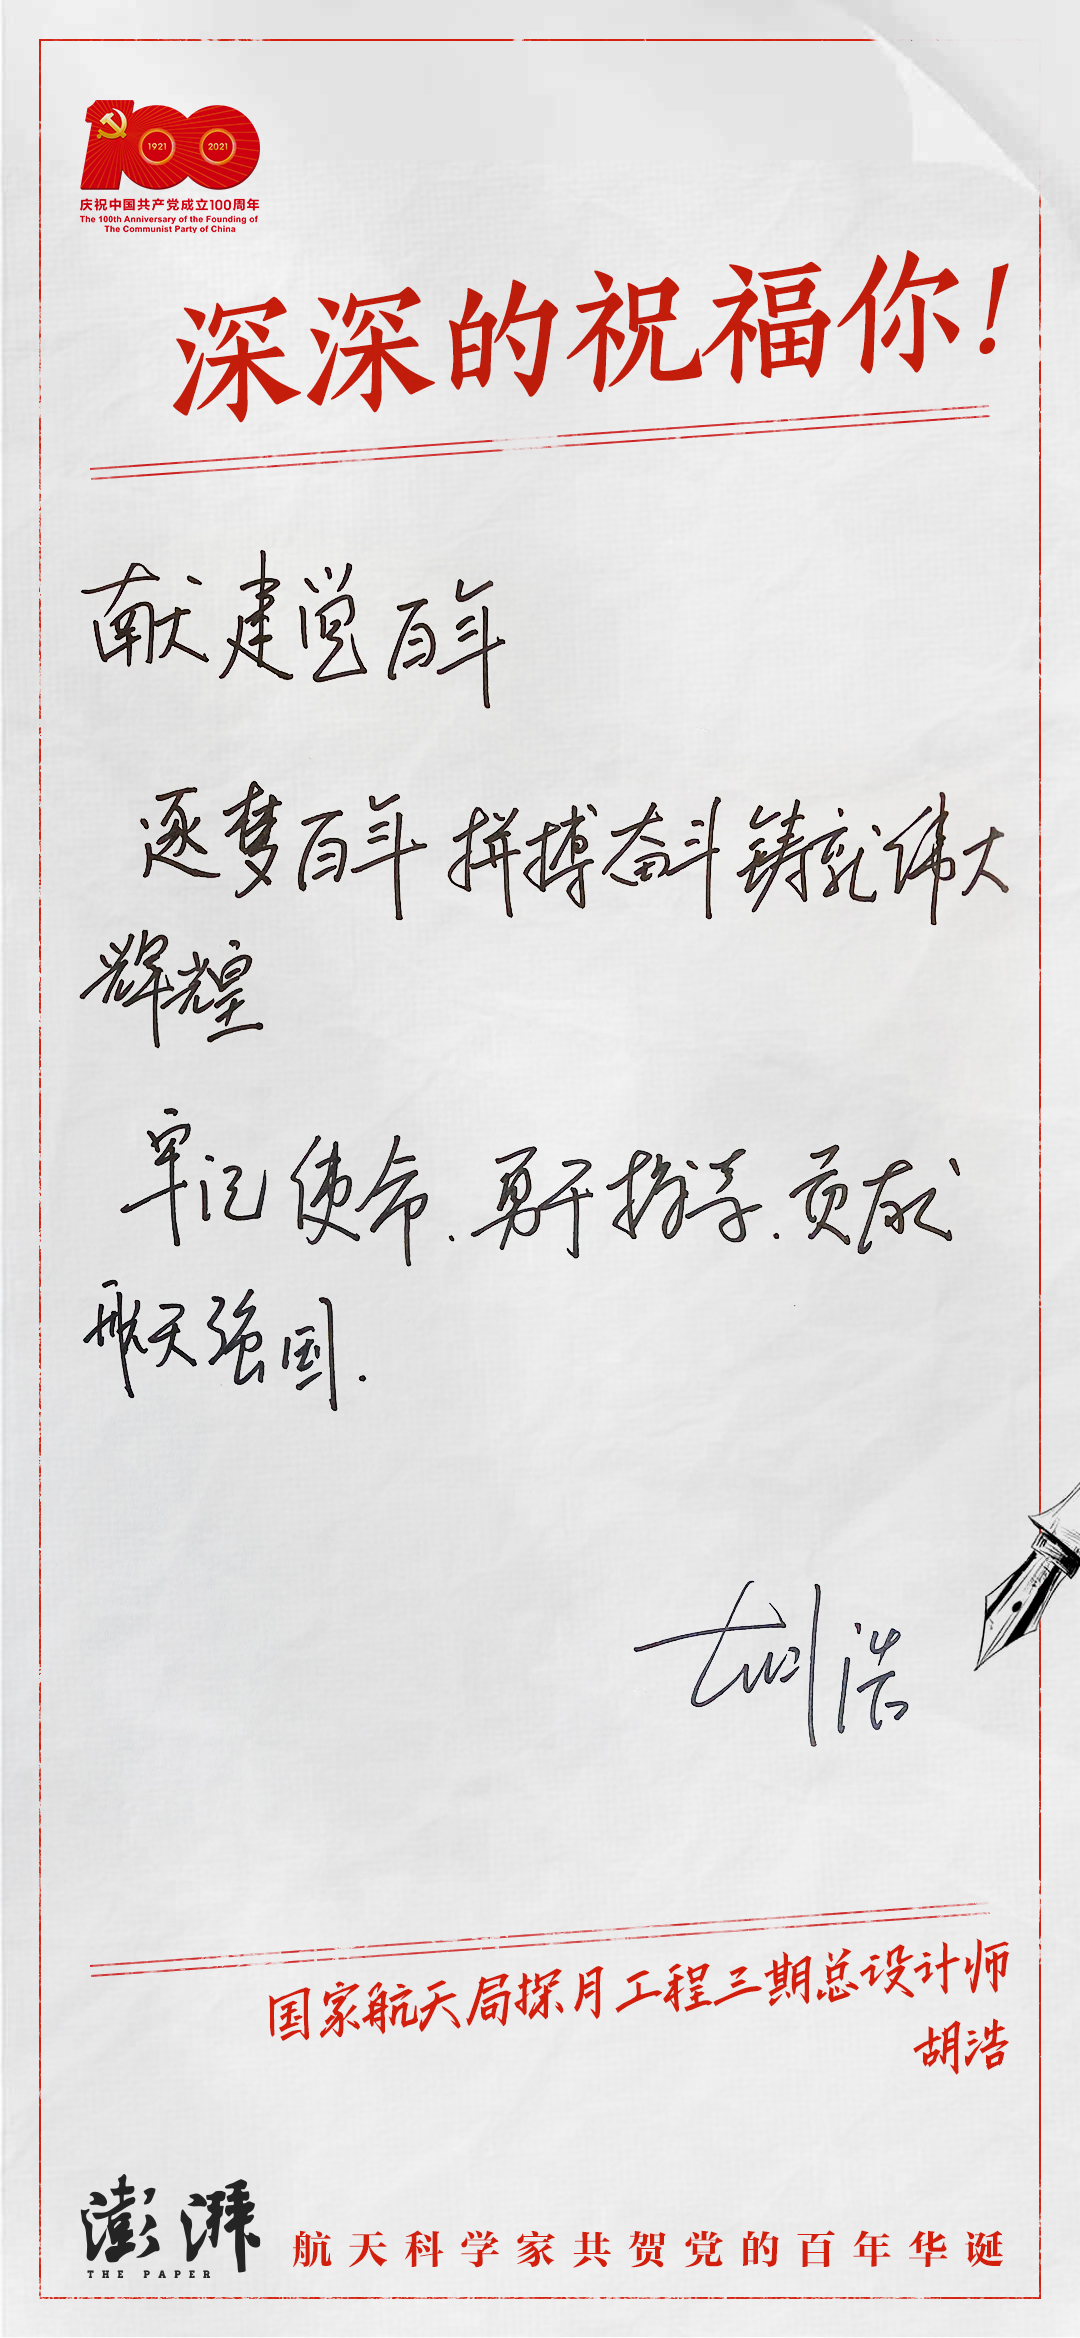 100
1921
2021
庆祝中国共产党成立100周年
The 100th Anniversary of the Founding of
The Communist Party of China
深深的祝福你!
献建党百年
逐梦百年 拼搏奋斗铸就伟大
辉煌
牢记使命.勇于探索.贡献
航天强国.
胡浩
国家航天局探月工程三期总设计师
胡浩
澎湃
THE PAPER
航天科学家共贺党的百年华诞